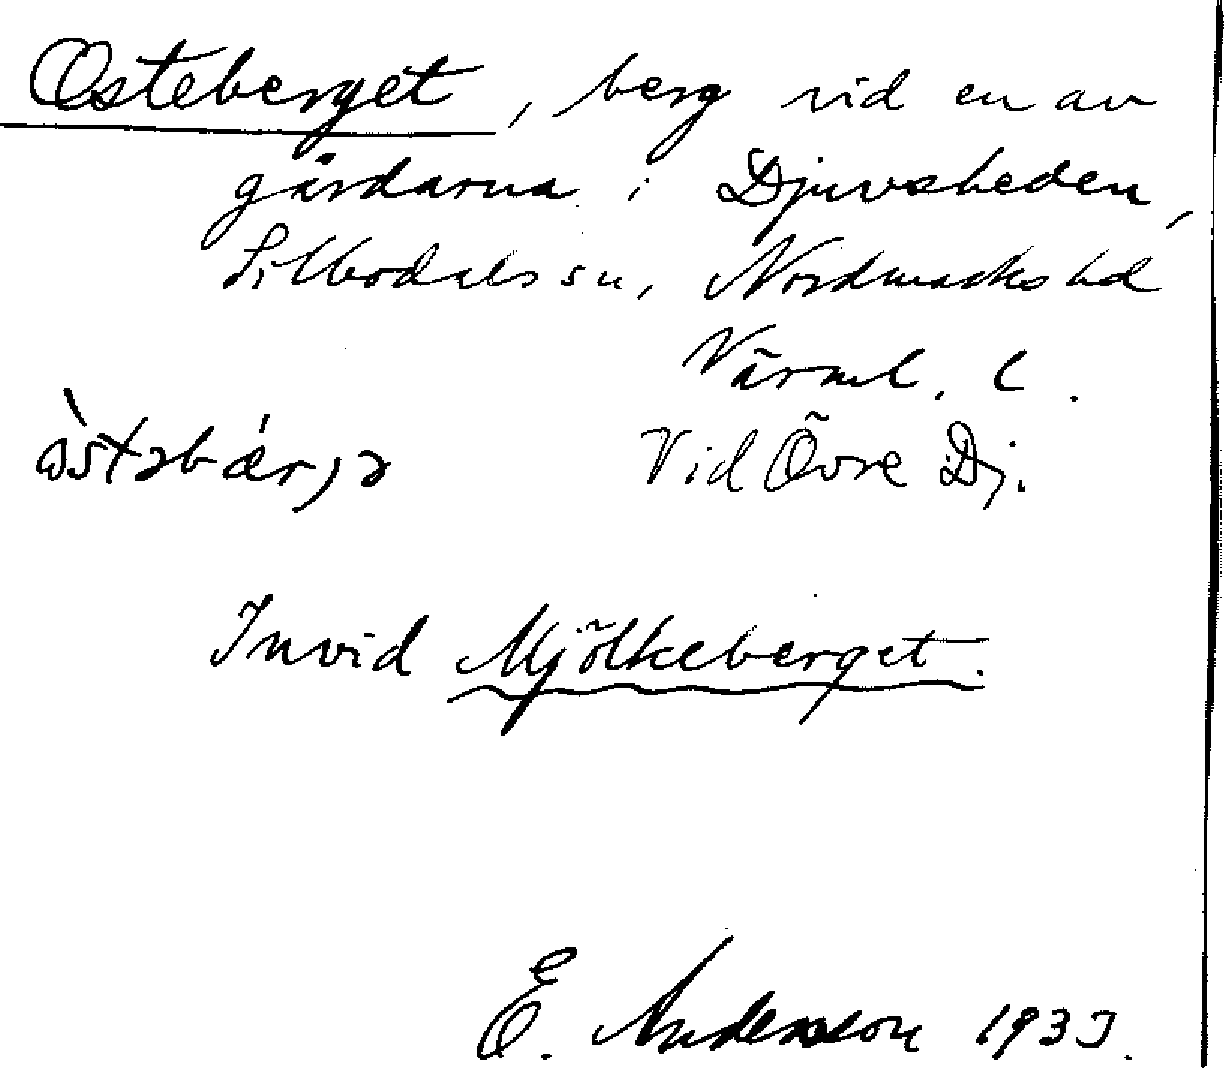 Osteberget, berg vid en av
gårdarna i Djuvsheden,
Silbodals sn, Nordmarks hd
Värml. l.
Vid Övre Dj.
Invid Mjölkeberget.
E. Andersson